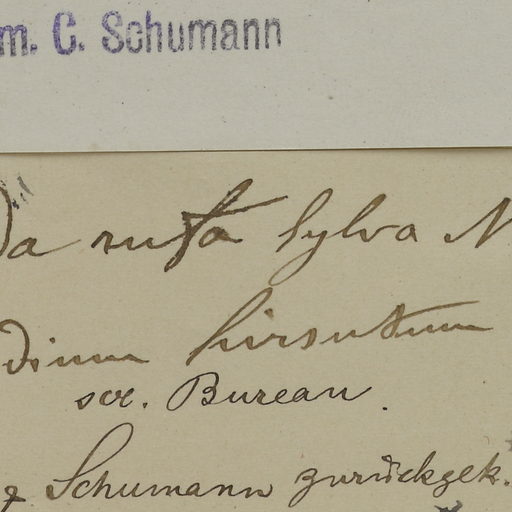 m. C. Schumann
da rufa Sylva N
dium hirsutum
scr. Bureau.
Schumann zurückgek.